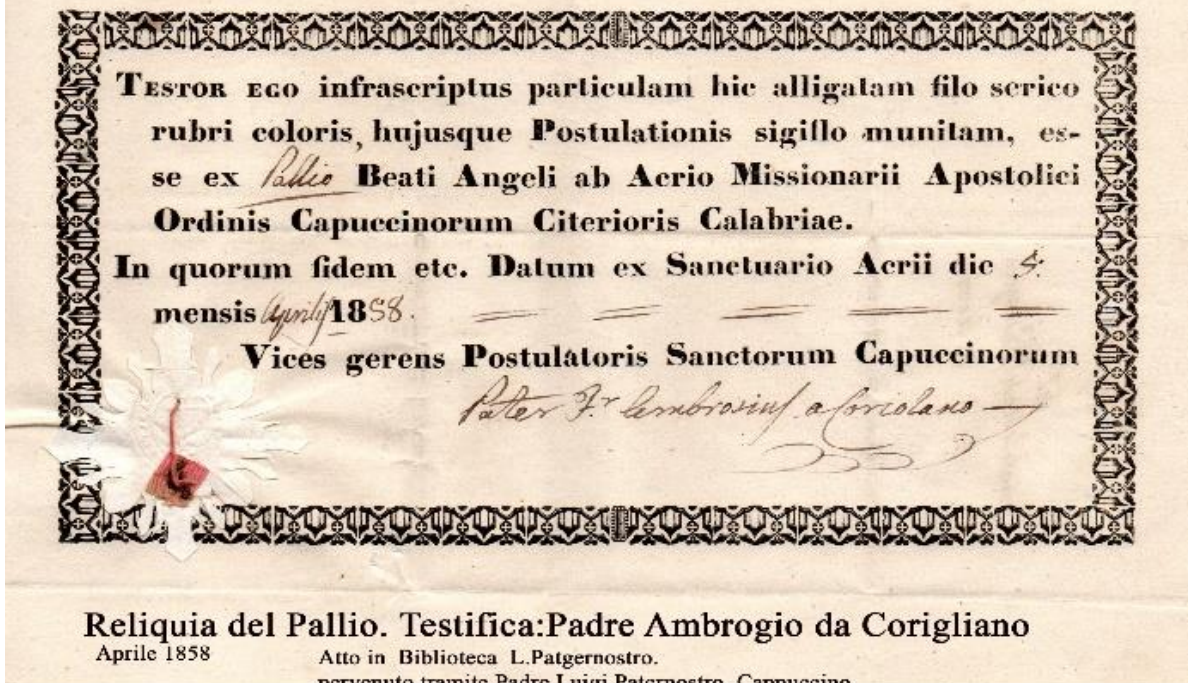 TESTOR EGO infrascriptus particulam hic alligatam filo serico
rubri coloris, hujusque Postulationis sigillo munitam, es-
se ex Pallio Beati Angeli ab Acrio Missionarii Apostolici
Ordinis Capuccinorum Citerioris Calabriae.
In quorum fidem etc. Datum ex Sanctuario Acrii die
mensis Aprilis 1858.
Vices gerens Postulatoris Sanctorum Capuccinorum
Pater Fr Ambrosius a Coriolano
Reliquia del Pallio. Testifica:Padre Ambrogio da Corigliano
Aprile 1858
Atto in Biblioteca L.Patgernostro.
pervenuto tramite Padre Luigi Paternostro, Cappuccino